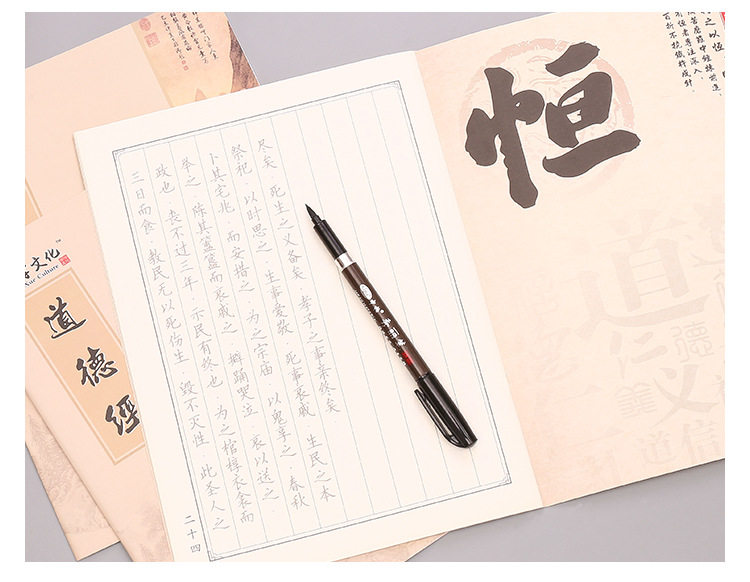 文化
Xue Culture™
道德经
三日而食·教民无以死伤生·毁不灭性·此圣人之
政也·丧不过三年·示民有终也·为之棺椁衣衾而
举之·陈其簠簋而哀戚之·擗踊哭泣·哀以送之·
卜其宅兆·而安措之·为之宗庙·以鬼享之·春秋
祭祀·以时思之·生事爱敬·死事哀戚·生民之本
尽矣·死生之义备矣·孝子之事亲终矣
二十四
恒
有恒者专注深入,
百折不挠铁杵成针.
道
仁
德
义
道
信